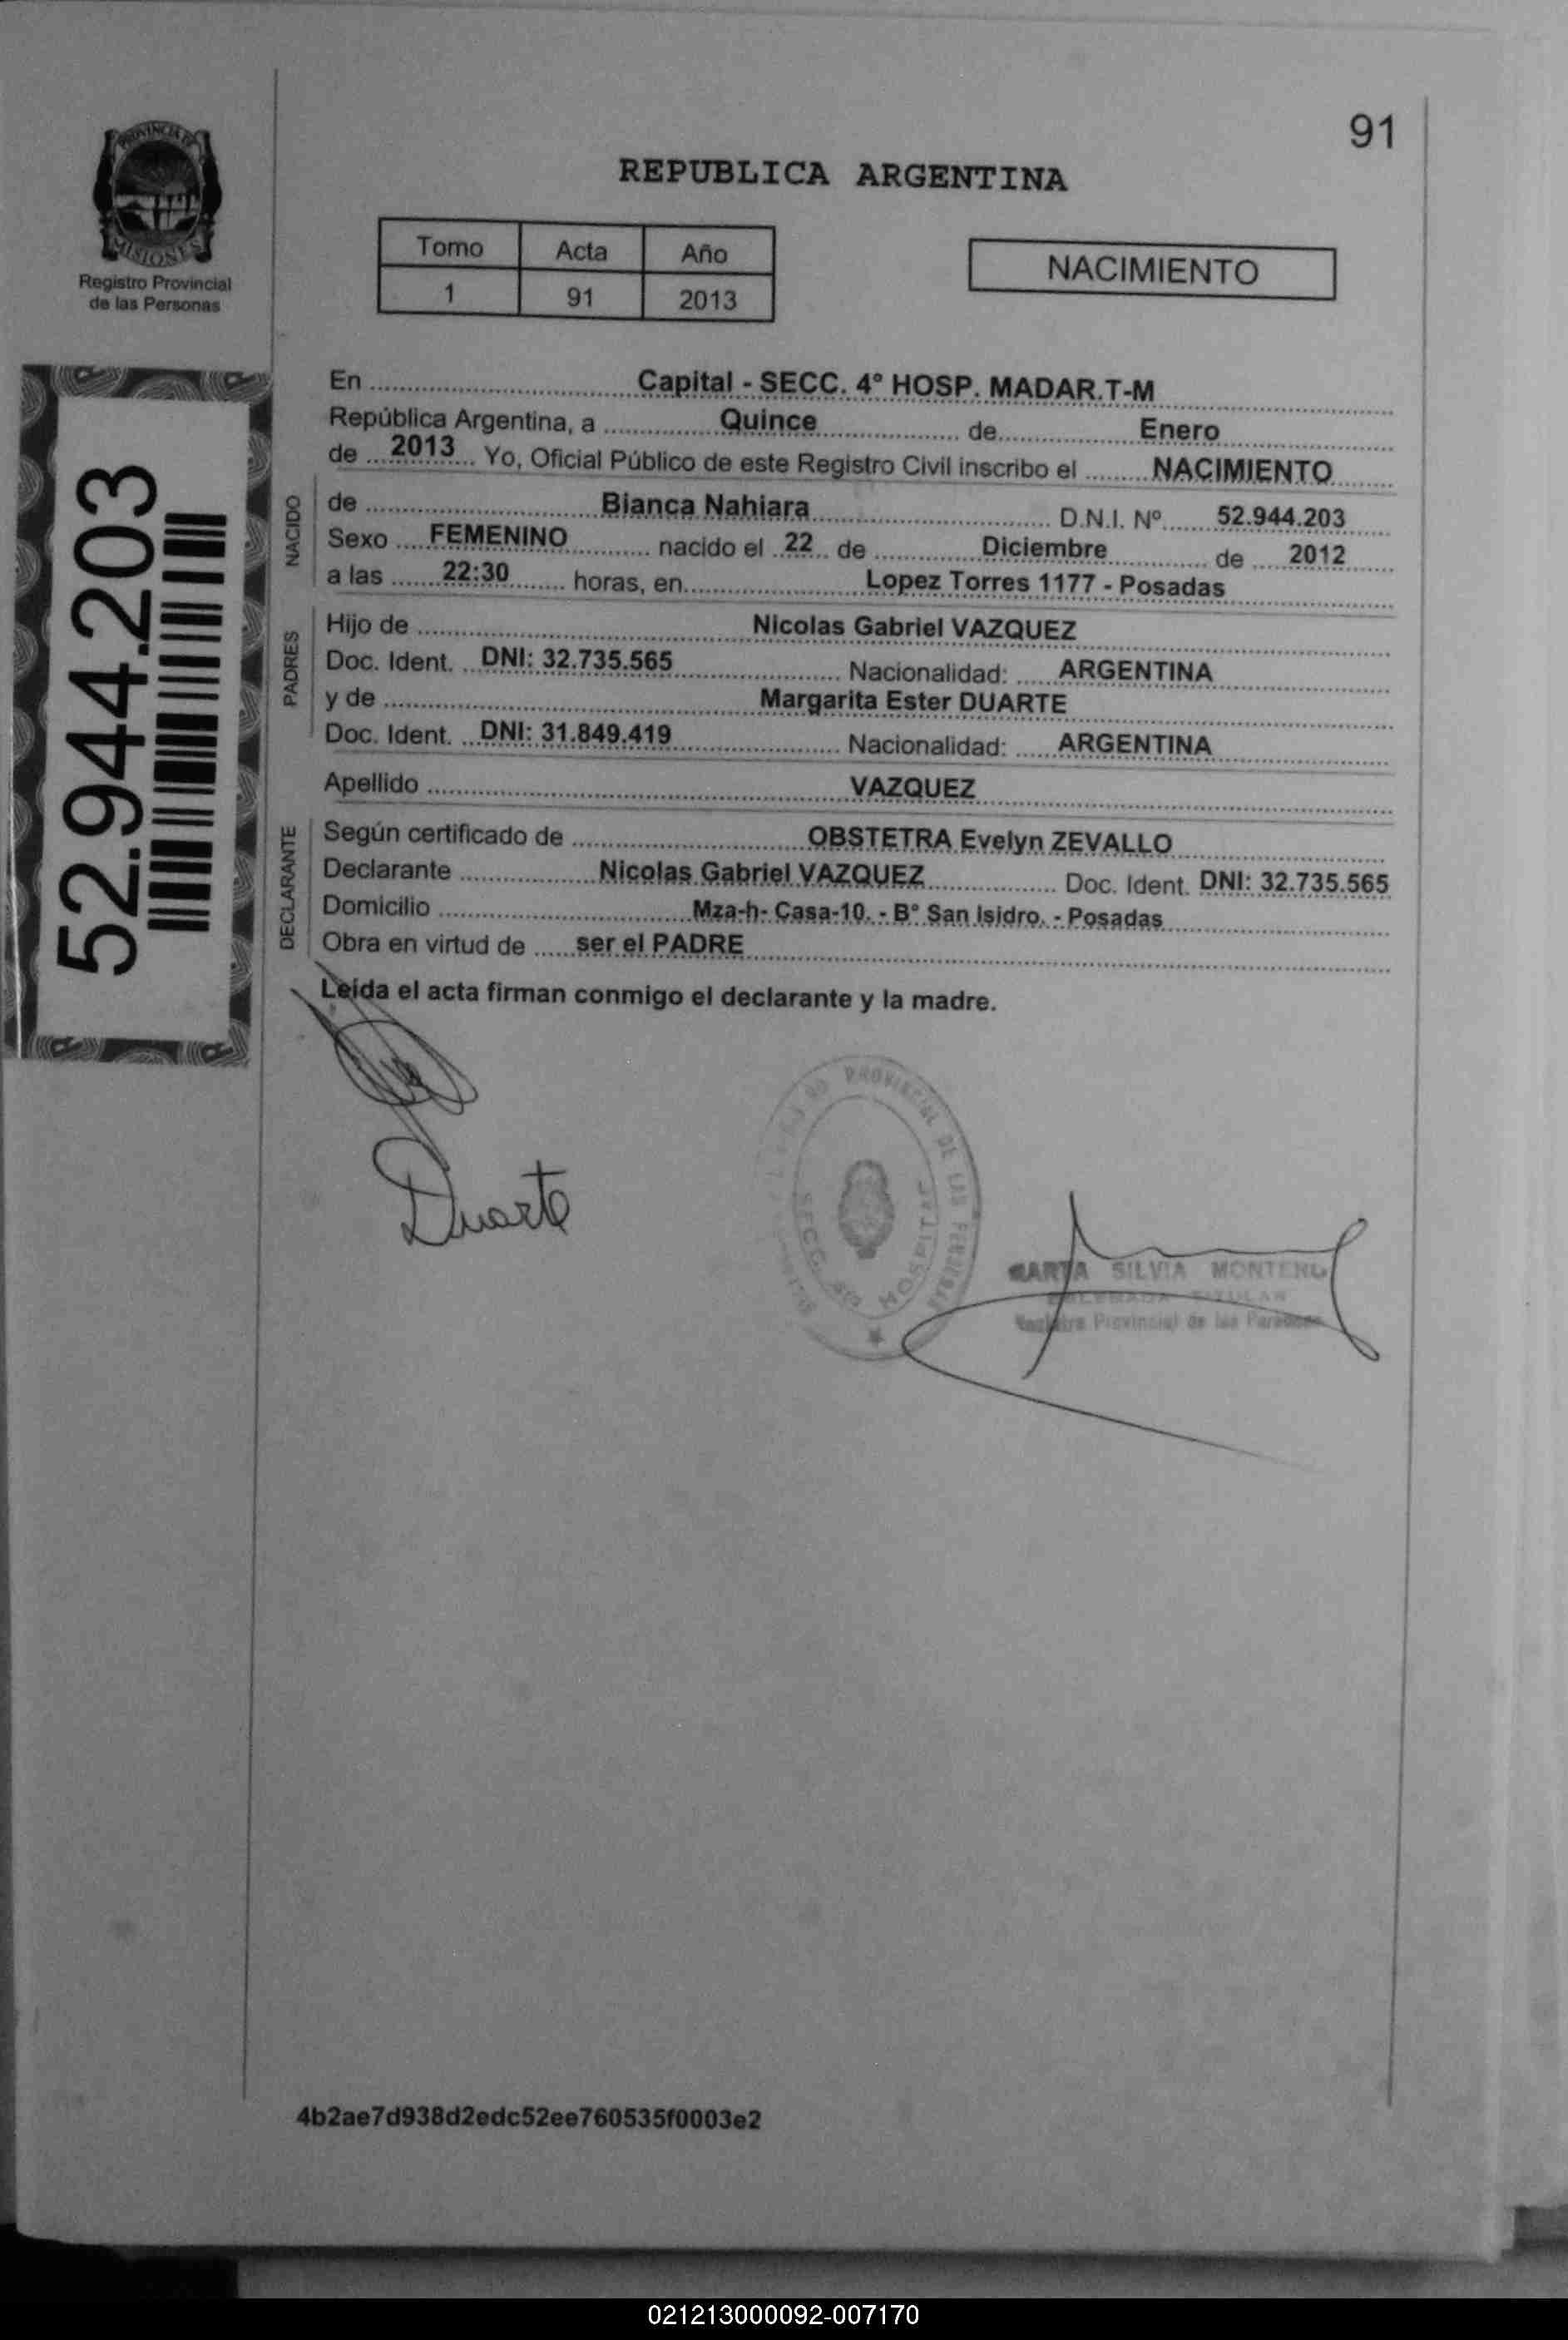 91
REPUBLICA ARGENTINA
PROVINCIA DE
MISIONES
Registro Provincial
de las Personas
Tomo Acta Año
1 91 2013
NACIMIENTO
52.944.203
En Capital - SECC. 4° HOSP. MADAR.T-M
República Argentina, a Quince de Enero
de 2013 Yo, Oficial Público de este Registro Civil inscribo el NACIMIENTO
NACIDO
de Bianca Nahiara D.N.I. Nº 52.944.203
Sexo FEMENINO nacido el 22 de Diciembre de 2012
a las 22:30 horas, en Lopez Torres 1177 - Posadas
PADRES
Hijo de Nicolas Gabriel VAZQUEZ
Doc. Ident. DNI: 32.735.565 Nacionalidad: ARGENTINA
y de Margarita Ester DUARTE
Doc. Ident. DNI: 31.849.419 Nacionalidad: ARGENTINA
Apellido VAZQUEZ
DECLARANTE
Según certificado de OBSTETRA Evelyn ZEVALLO
Declarante Nicolas Gabriel VAZQUEZ Doc. Ident. DNI: 32.735.565
Domicilio Mza-h- Casa-10. - B° San Isidro. - Posadas
Obra en virtud de ser el PADRE
Leída el acta firman conmigo el declarante y la madre.
Duarte
PROVINCIAL DE LAS
SECC. HOSPITAL
SILVIA
Provincial de las
4b2ae7d938d2edc52ee760535f0003e2
021213000092-007170